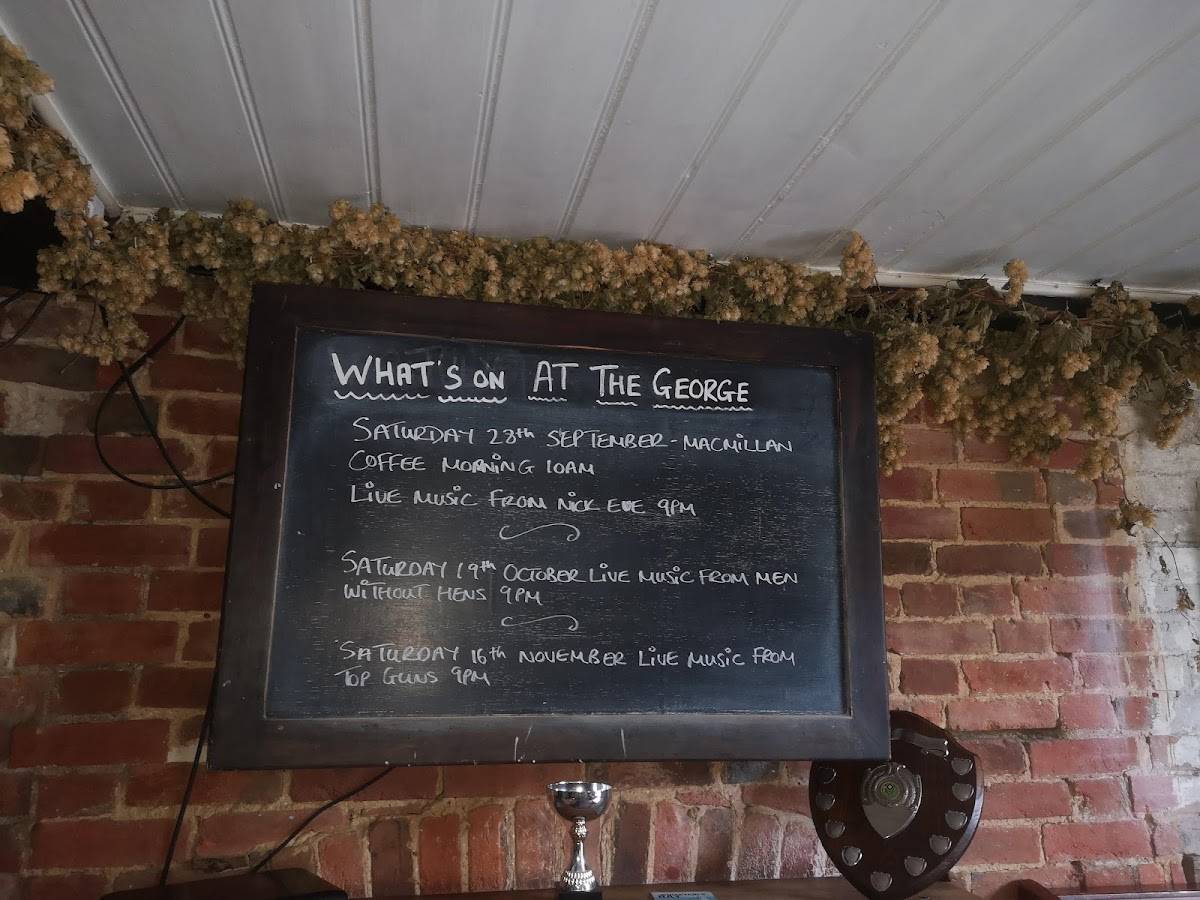 WHAT'S ON AT THE GEORGE
SATURDAY 28th SEPTEMBER - MACMILLAN
COFFEE MORNING 10AM
LIVE MUSIC FROM NICK EVE 9PM
SATURDAY 19th OCTOBER LIVE MUSIC FROM MEN
WITHOUT HENS 9PM
SATURDAY 16th NOVEMBER LIVE MUSIC FROM
TOP GUNS 9PM